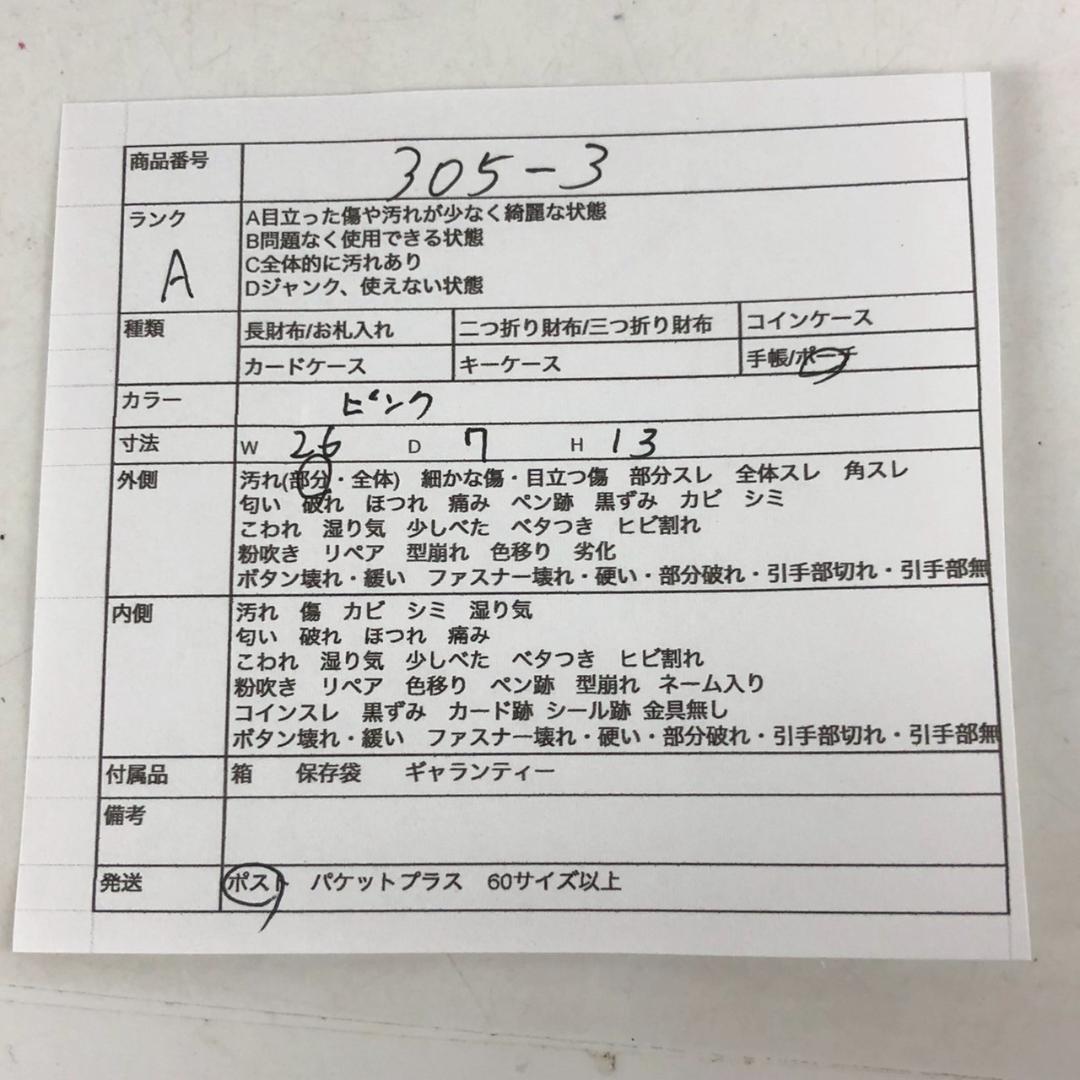 商品番号 305-3
ランク A
A目立った傷や汚れが少なく綺麗な状態
B問題なく使用できる状態
C全体的に汚れあり
Dジャンク、使えない状態
種類 長財布/お札入れ 二つ折り財布/三つ折り財布 コインケース
カードケース キーケース 手帳/ポーチ
カラー ピンク
寸法 W 26 D 7 H 13
外側 汚れ(部分・全体) 細かな傷・目立つ傷 部分スレ 全体スレ 角スレ
匂い 破れ ほつれ 痛み ペン跡 黒ずみ カビ シミ
こわれ 湿り気 少しべた ベタつき ヒビ割れ
粉吹き リペア 型崩れ 色移り 劣化
ボタン壊れ・緩い ファスナー壊れ・硬い・部分破れ・引手部切れ・引手部無
内側 汚れ 傷 カビ シミ 湿り気
匂い 破れ ほつれ 痛み
こわれ 湿り気 少しべた ベタつき ヒビ割れ
粉吹き リペア 色移り ペン跡 型崩れ ネーム入り
コインスレ 黒ずみ カード跡 シール跡 金具無し
ボタン壊れ・緩い ファスナー壊れ・硬い・部分破れ・引手部切れ・引手部無
付属品 箱 保存袋 ギャランティー
備考
発送 ポスト パケットプラス 60サイズ以上